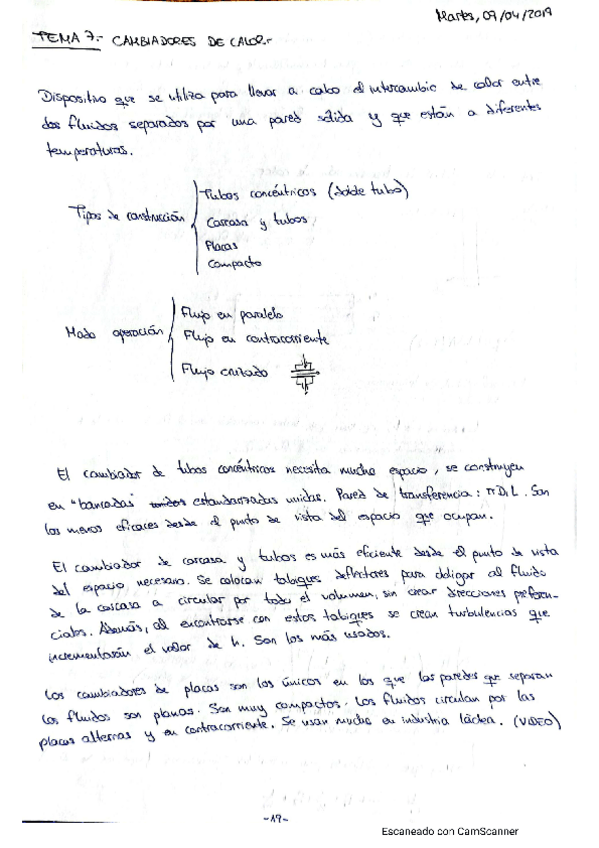 Martes, 09/04/2019
TEMA 7.- CAMBIADORES DE CALOR.-
Dispositivo que se utiliza para llevar a cabo el intercambio de calor entre
dos fluidos separados por una pared sólida y que están a diferentes
temperaturas.
Tipos de construcción
Tubos concéntricos (doble tubo)
Carcasa y tubos
Placas
Compacto
Modo operación
Flujo en paralelo
Flujo en contracorriente
Flujo cruzado
El cambiador de tubos concéntricos necesita mucho espacio, se construyen
en "bancadas" estandarizadas unidas. Pared de transferencia: π.D.L. Son
los menos eficaces desde el punto de vista del espacio que ocupan.
El cambiador de carcasa y tubos es más eficiente desde el punto de vista
del espacio necesario. Se colocan tabiques deflectores para obligar al fluido
de la carcasa a circular por todo el volumen, sin crear direcciones preferen-
ciales. Además, al encontrarse con estos tabiques se crean turbulencias que
incrementarán el valor de h. Son los más usados.
Los cambiadores de placas son los únicos en los que las paredes que separan
los fluidos son planas. Son muy compactos. Los fluidos circulan por las
placas alternas y en contracorriente. Se usan mucho en industria láctea. (VIDEO)
-19-
Escaneado con CamScanner